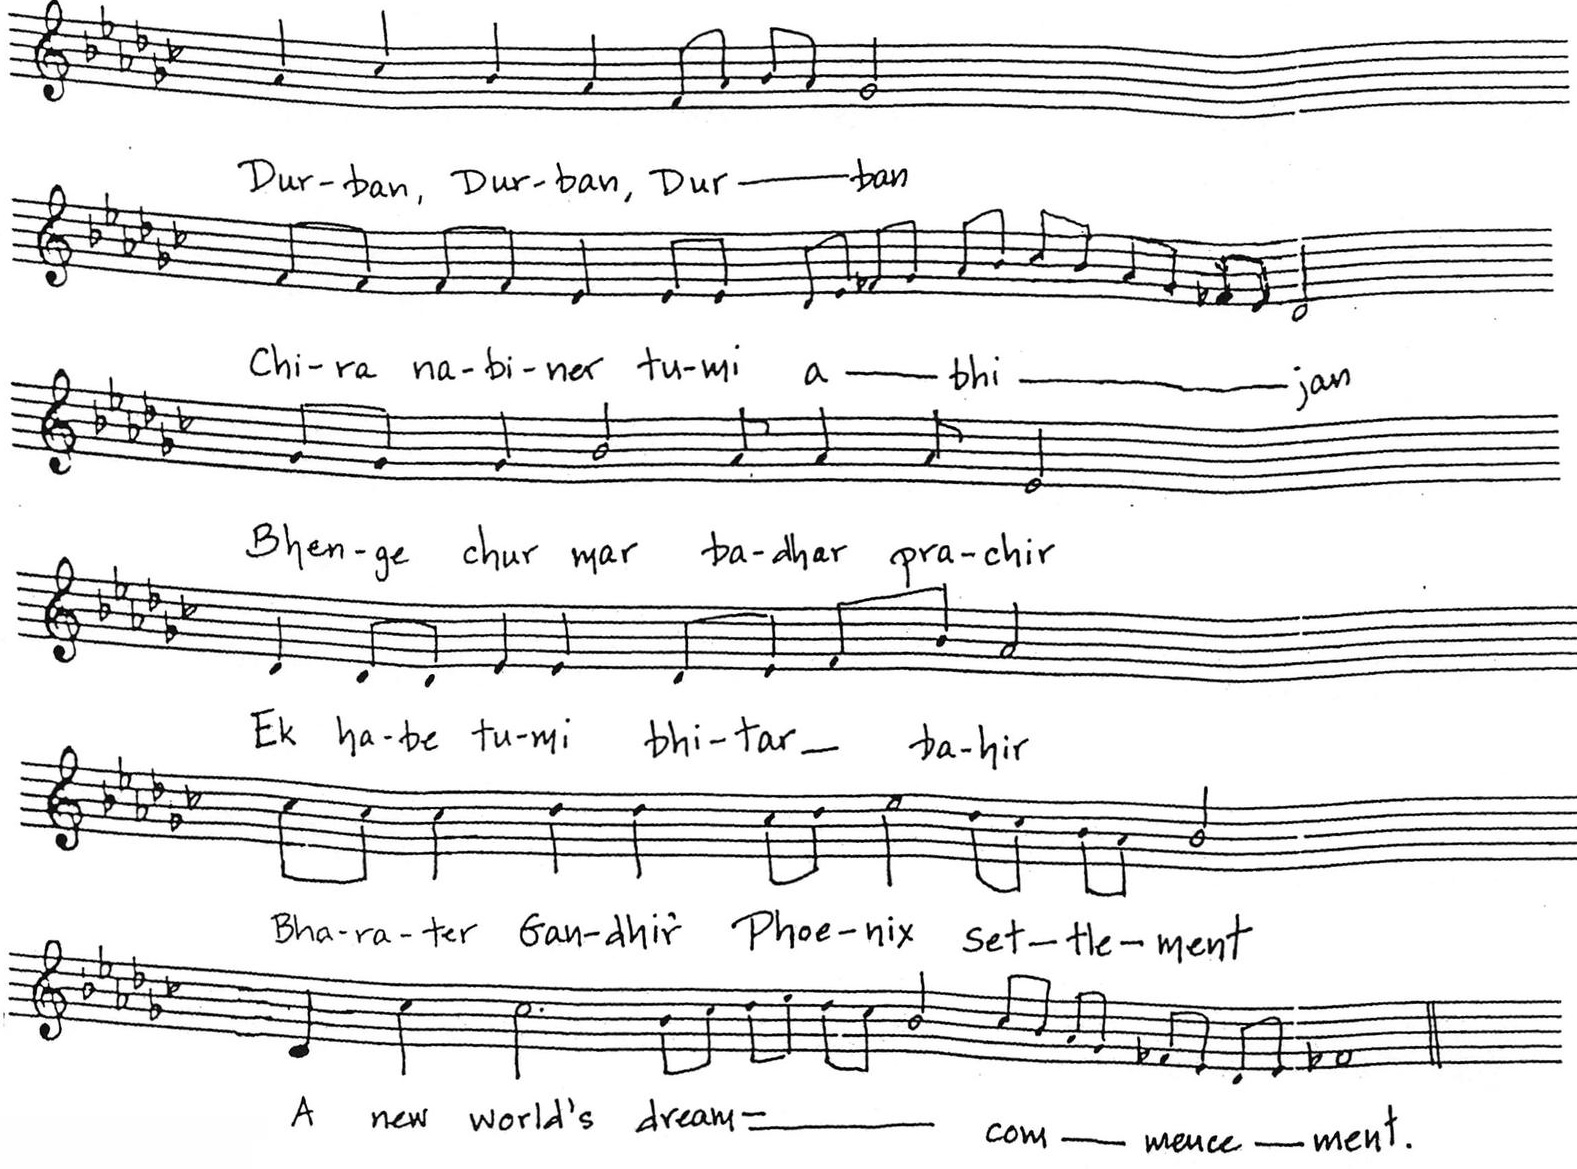 Dur-ban, Dur-ban, Dur——ban
Chi-ra na-bi-ner tu-mi a——bhi————jan
Bhen-ge chur mar ba-dhar pra-chir
Ek ha-be tu-mi bhi-tar— ba-hir
Bha-ra-ter Gan-dhir Phoe-nix set-tle-ment
A new world's dream———— com——mence—ment.